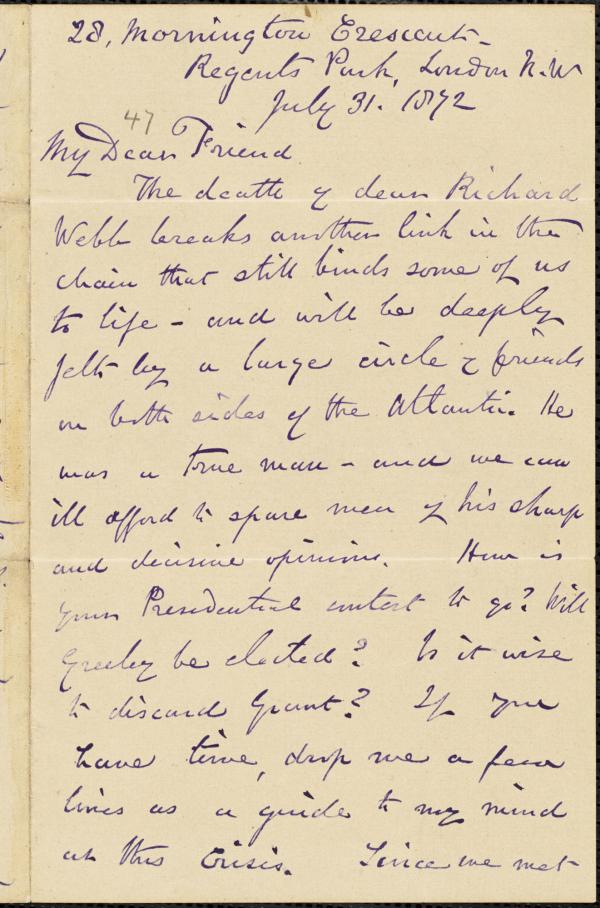 28, Mornington Crescent -
Regents Park, London N.W
July 31. 1872
47
My Dear Friend
The death of dear Richard
Webb breaks another link in the
chain that still binds some of us
to life - and will be deeply
felt by a large circle of friends
on both sides of the Atlantic. He
was a true man - and we can
ill afford to spare men of his sharp
and decisive opinions. How is
your Presidential contest to go? Will
Greeley be elected? Is it wise
to discard Grant? If you
have time, drop me a few
lines as a guide to my mind
at this Crisis. Since we met